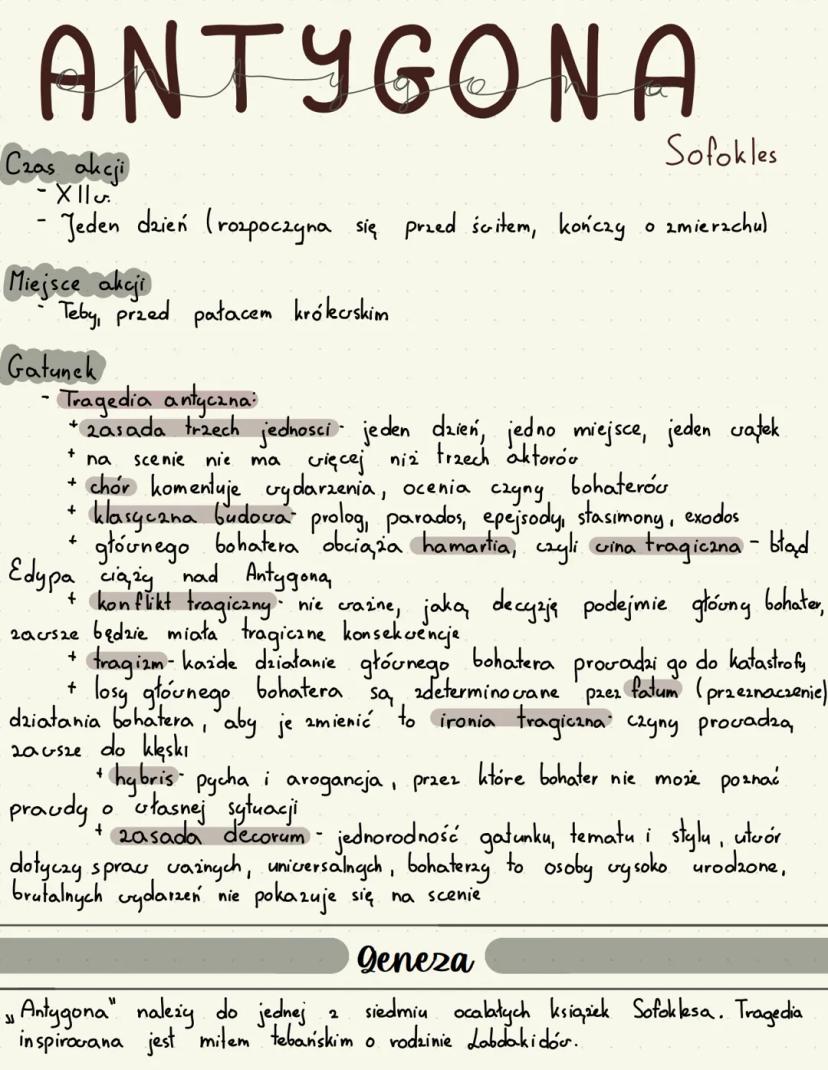 ANTYGONA
antygona
Sofokles
Czas akcji
- XII w.
- Jeden dzień (rozpoczyna się przed świtem, kończy o zmierzchu)
Miejsce akcji
- Teby, przed pałacem królewskim
Gatunek
- Tragedia antyczna:
+ zasada trzech jedności - jeden dzień, jedno miejsce, jeden wątek
+ na scenie nie ma więcej niż trzech aktorów
+ chór komentuje wydarzenia, ocenia czyny bohaterów
+ klasyczna budowa - prolog, parados, epejsody, stasimony, exodos
+ głównego bohatera obciąża hamartia, czyli wina tragiczna - błąd
Edypa ciąży nad Antygoną
+ konflikt tragiczny - nie ważne, jaką decyzję podejmie główny bohater,
zawsze będzie miała tragiczne konsekwencje
+ tragizm - każde działanie głównego bohatera prowadzi go do katastrofy
+ losy głównego bohatera są zdeterminowane pzez fatum (przeznaczenie)
działania bohatera, aby je zmienić to ironia tragiczna - czyny prowadzą
zawsze do klęski
+ hybris - pycha i arogancja, przez które bohater nie może poznać
prawdy o własnej sytuacji
+ zasada decorum - jednorodność gatunku, tematu i stylu, utwór
dotyczy spraw ważnych, uniwersalnych, bohaterzy to osoby wysoko urodzone,
brutalnych wydarzeń nie pokazuje się na scenie
geneza
„Antygona" należy do jednej z siedmiu ocalałych książek Sofoklesa. Tragedia
inspirowana jest mitem tebańskim o rodzinie Labdakidów.